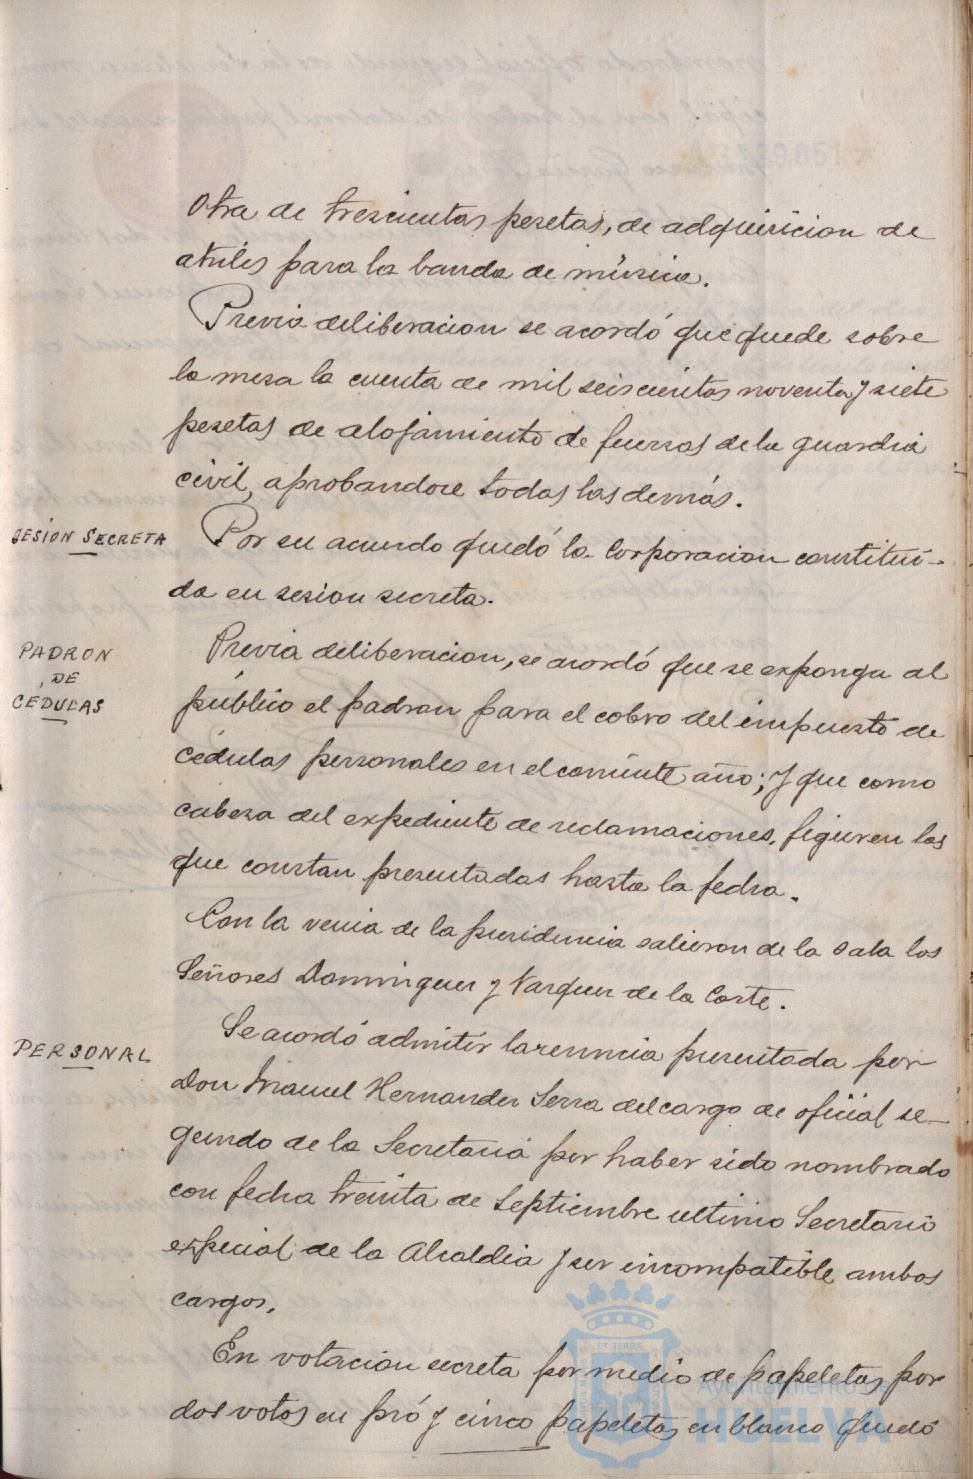 Otra de trescientas pesetas, de adquisicion de
atriles para la banda de música.
Previa deliberacion se acordó que quede sobre
la mesa la cuenta de mil seiscientas noventa y siete
pesetas de alojamiento de fuerzas de la guardia
civil, aprobandose todas las demás.
SESION SECRETA
Por su acuerdo quedó la Corporacion constitui-
da en sesion secreta.
PADRON
DE
CÉDULAS
Previa deliberacion, se acordó que se exponga al
público el padron para el cobro del impuesto de
cédulas personales en el corriente año; y que como
cabeza del expediente de reclamaciones, figuren las
que constan presentadas hasta la fecha.
Con la venia de la presidencia salieron de la sala los
Señores Dominguez y Vazquez de la Corte.
PERSONAL
Se acordó admitir la renuncia presentada por
Don Manuel Hernandez Serra del cargo de oficial se-
gundo de la Secretaria por haber sido nombrado
con fecha treinta de Septiembre ultimo Secretario
especial de la Alcaldia y ser incompatible ambos
cargos.
En votacion secreta por medio de papeletas, por
dos votos en pró y cinco papeletas en blanco quedó
Ayuntamiento de
HUELVA